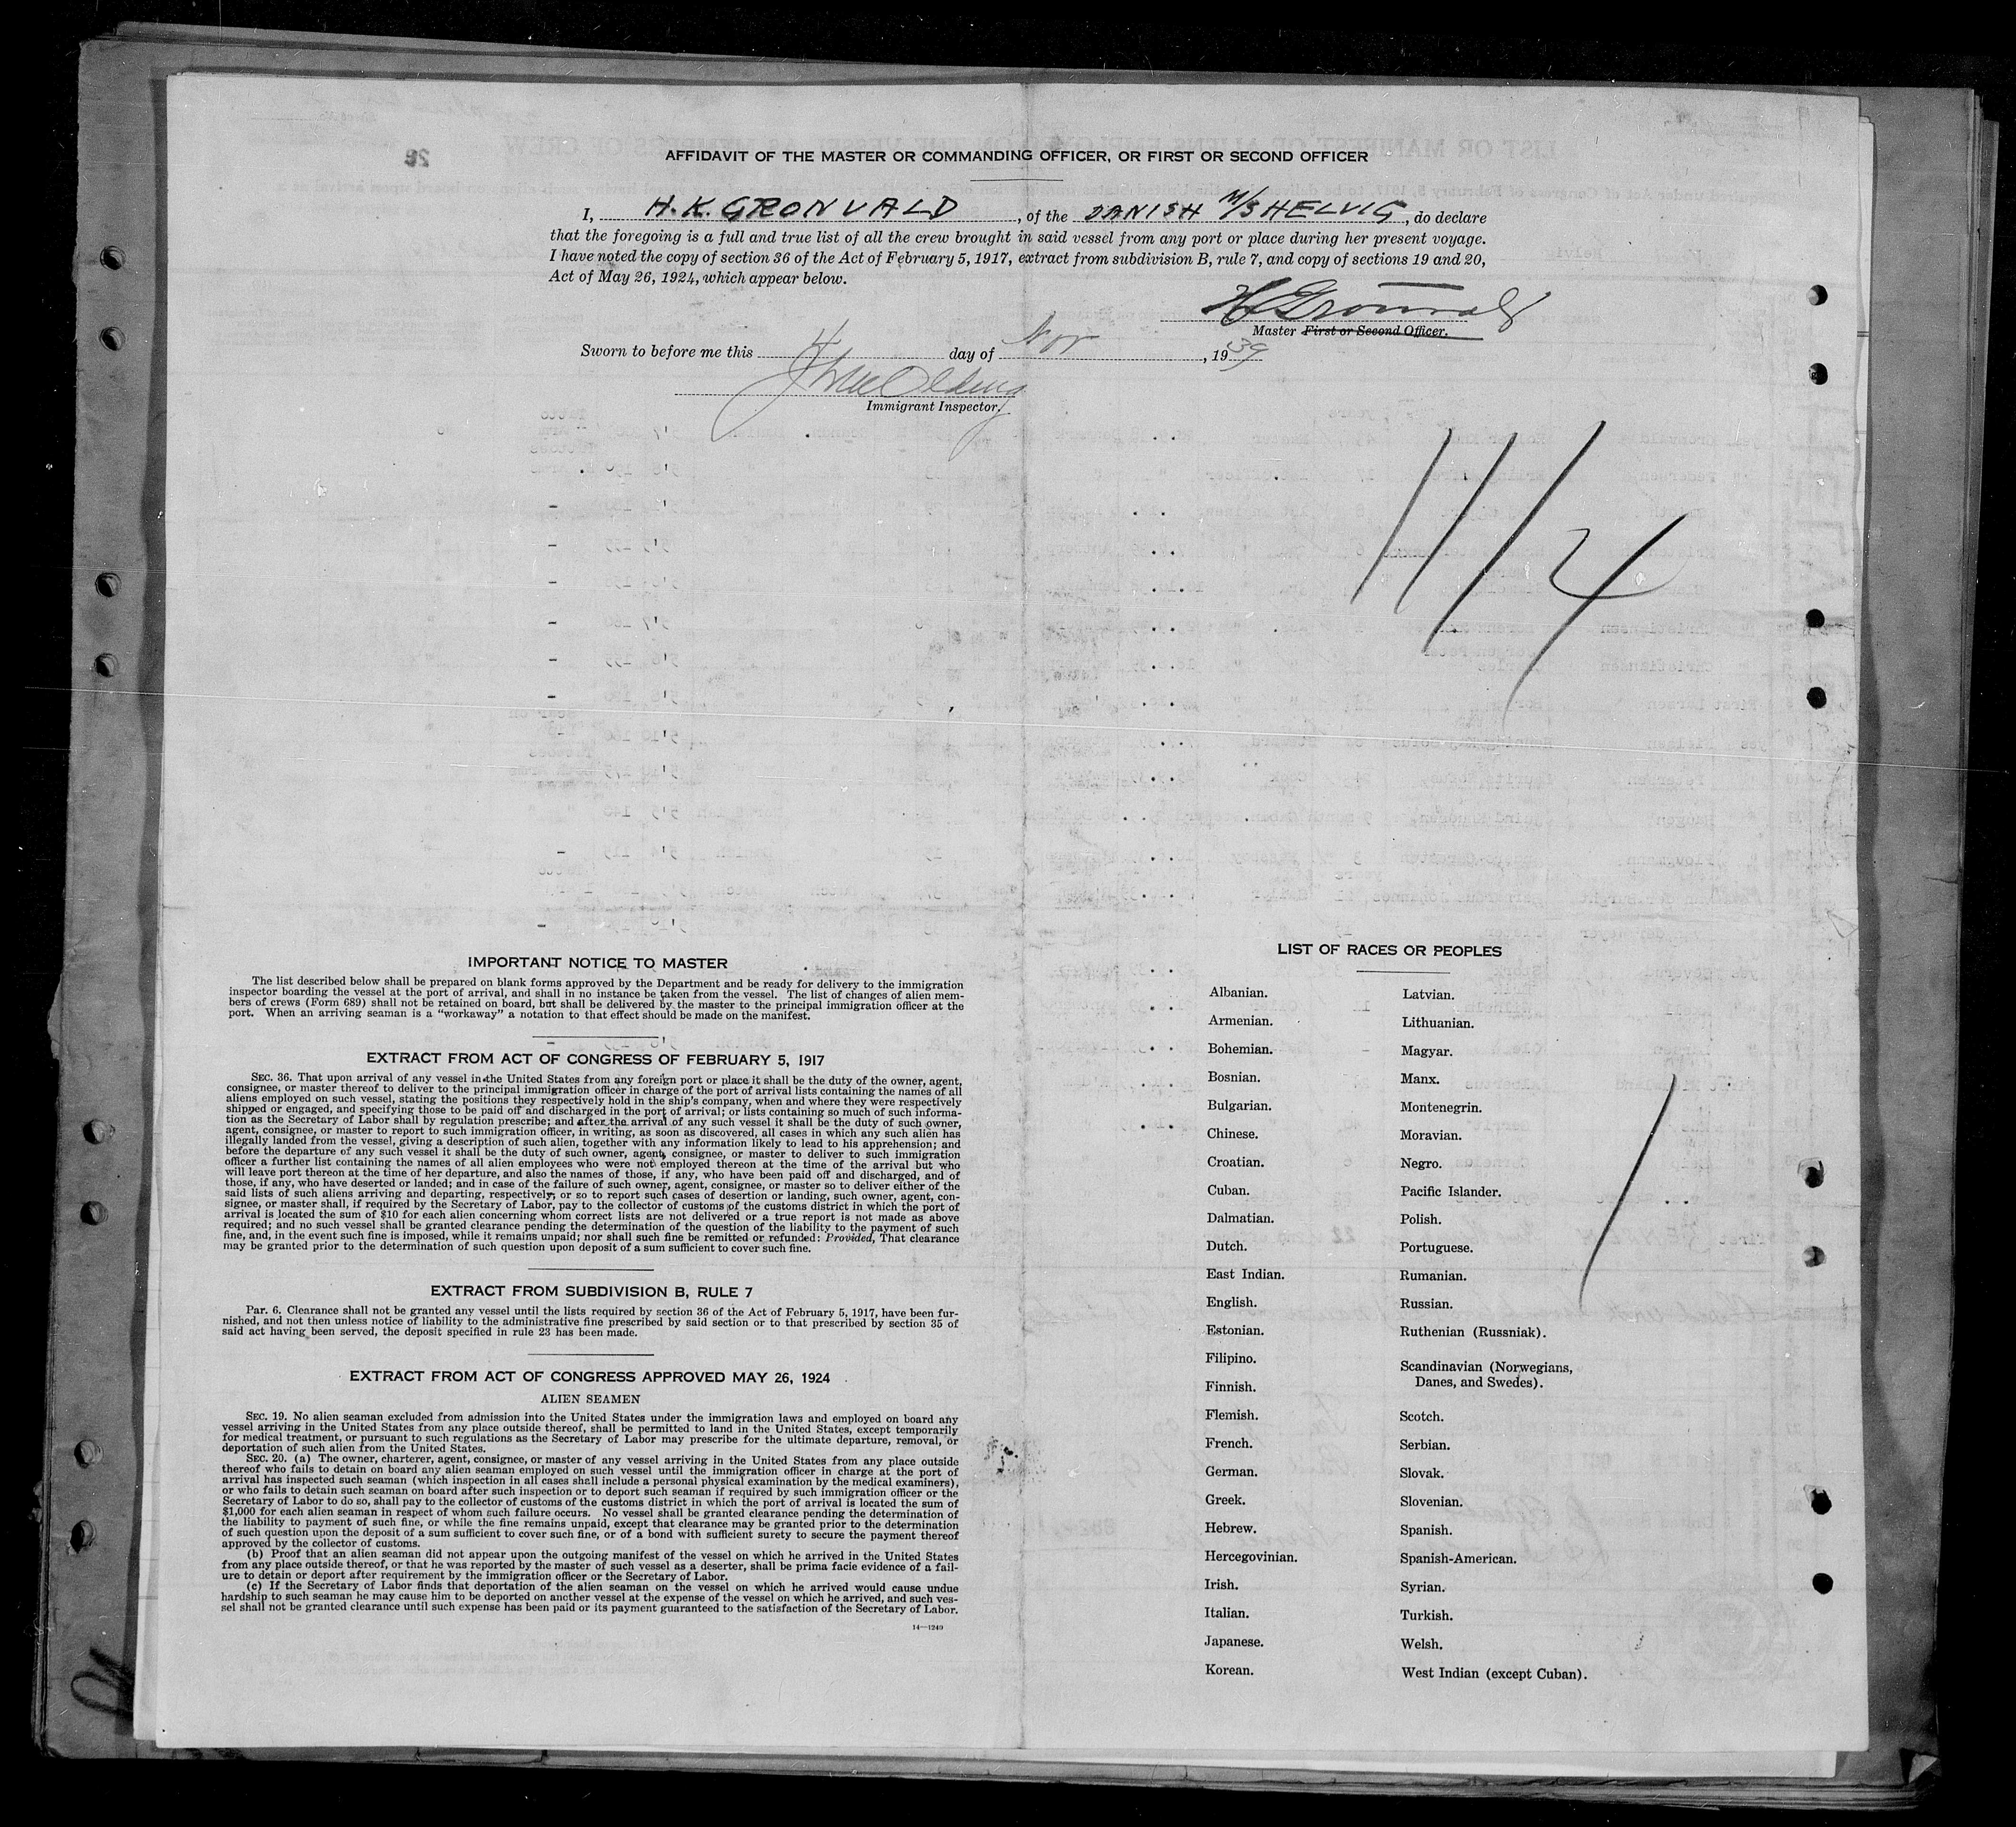 AFFIDAVIT OF THE MASTER OR COMMANDING OFFICER, OR FIRST OR SECOND OFFICER
I, H. K. GRONVALD, of the DANISH M/S HELVIG, do declare
that the foregoing is a full and true list of all the crew brought in said vessel from any port or place during her present voyage.
I have noted the copy of section 36 of the Act of February 5, 1917, extract from subdivision B, rule 7, and copy of sections 19 and 20,
Act of May 26, 1924, which appear below.
Master First or Second Officer.
Sworn to before me this 4 day of Nov, 1939
Immigrant Inspector.
11/4
IMPORTANT NOTICE TO MASTER
The list described below shall be prepared on blank forms approved by the Department and be ready for delivery to the immigration
inspector boarding the vessel at the port of arrival, and shall in no instance be taken from the vessel. The list of changes of alien mem-
bers of crews (Form 689) shall not be retained on board, but shall be delivered by the master to the principal immigration officer at the
port. When an arriving seaman is a "workaway" a notation to that effect should be made on the manifest.
EXTRACT FROM ACT OF CONGRESS OF FEBRUARY 5, 1917
SEC. 36. That upon arrival of any vessel in the United States from any foreign port or place it shall be the duty of the owner, agent,
consignee, or master thereof to deliver to the principal immigration officer in charge of the port of arrival lists containing the names of all
aliens employed on such vessel, stating the positions they respectively hold in the ship's company, when and where they were respectively
shipped or engaged, and specifying those to be paid off and discharged in the port of arrival; or lists containing so much of such informa-
tion as the Secretary of Labor shall by regulation prescribe; and after the arrival of any such vessel it shall be the duty of such owner,
agent, consignee, or master to report to such immigration officer, in writing, as soon as discovered, all cases in which any such alien has
illegally landed from the vessel, giving a description of such alien, together with any information likely to lead to his apprehension; and
before the departure of any such vessel it shall be the duty of such owner, agent, consignee, or master to deliver to such immigration
officer a further list containing the names of all alien employees who were not employed thereon at the time of the arrival but who
will leave port thereon at the time of her departure, and also the names of those, if any, who have been paid off and discharged, and of
those, if any, who have deserted or landed; and in case of the failure of such owner, agent, consignee, or master so to deliver either of the
said lists of such aliens arriving and departing, respectively, or so to report such cases of desertion or landing, such owner, agent, con-
signee, or master shall, if required by the Secretary of Labor, pay to the collector of customs of the customs district in which the port of
arrival is located the sum of $10 for each alien concerning whom correct lists are not delivered or a true report is not made as above
required; and no such vessel shall be granted clearance pending the determination of the question of the liability to the payment of such
fine, and, in the event such fine is imposed, while it remains unpaid; nor shall such fine be remitted or refunded: Provided, That clearance
may be granted prior to the determination of such question upon deposit of a sum sufficient to cover such fine.
EXTRACT FROM SUBDIVISION B, RULE 7
Par. 6. Clearance shall not be granted any vessel until the lists required by section 36 of the Act of February 5, 1917, have been fur-
nished, and not then unless notice of liability to the administrative fine prescribed by said section or to that prescribed by section 35 of
said act having been served, the deposit specified in rule 23 has been made.
EXTRACT FROM ACT OF CONGRESS APPROVED MAY 26, 1924
ALIEN SEAMEN
SEC. 19. No alien seaman excluded from admission into the United States under the immigration laws and employed on board any
vessel arriving in the United States from any place outside thereof, shall be permitted to land in the United States, except temporarily
for medical treatment, or pursuant to such regulations as the Secretary of Labor may prescribe for the ultimate departure, removal, or
deportation of such alien from the United States.
SEC. 20. (a) The owner, charterer, agent, consignee, or master of any vessel arriving in the United States from any place outside
thereof who fails to detain on board any alien seaman employed on such vessel until the immigration officer in charge at the port of
arrival has inspected such seaman (which inspection in all cases shall include a personal physical examination by the medical examiners),
or who fails to detain such seaman on board after such inspection or to deport such seaman if required by such immigration officer or the
Secretary of Labor to do so, shall pay to the collector of customs of the customs district in which the port of arrival is located the sum of
$1,000 for each alien seaman in respect of whom such failure occurs. No vessel shall be granted clearance pending the determination of
the liability to payment of such fine, or while the fine remains unpaid, except that clearance may be granted prior to the determination
of such question upon the deposit of a sum sufficient to cover such fine, or of a bond with sufficient surety to secure the payment thereof
approved by the collector of customs.
(b) Proof that an alien seaman did not appear upon the outgoing manifest of the vessel on which he arrived in the United States
from any place outside thereof, or that he was reported by the master of such vessel as a deserter, shall be prima facie evidence of a fail-
ure to detain or deport after requirement by the immigration officer or the Secretary of Labor.
(c) If the Secretary of Labor finds that deportation of the alien seaman on the vessel on which he arrived would cause undue
hardship to such seaman he may cause him to be deported on another vessel at the expense of the vessel on which he arrived, and such ves-
sel shall not be granted clearance until such expense has been paid or its payment guaranteed to the satisfaction of the Secretary of Labor.
14—1240
LIST OF RACES OR PEOPLES
Albanian.
Armenian.
Bohemian.
Bosnian.
Bulgarian.
Chinese.
Croatian.
Cuban.
Dalmatian.
Dutch.
East Indian.
English.
Estonian.
Filipino.
Finnish.
Flemish.
French.
German.
Greek.
Hebrew.
Hercegovinian.
Irish.
Italian.
Japanese.
Korean.
Latvian.
Lithuanian.
Magyar.
Manx.
Montenegrin.
Moravian.
Negro.
Pacific Islander.
Polish.
Portuguese.
Rumanian.
Russian.
Ruthenian (Russniak).
Scandinavian (Norwegians,
Danes, and Swedes).
Scotch.
Serbian.
Slovak.
Slovenian.
Spanish.
Spanish-American.
Syrian.
Turkish.
Welsh.
West Indian (except Cuban).